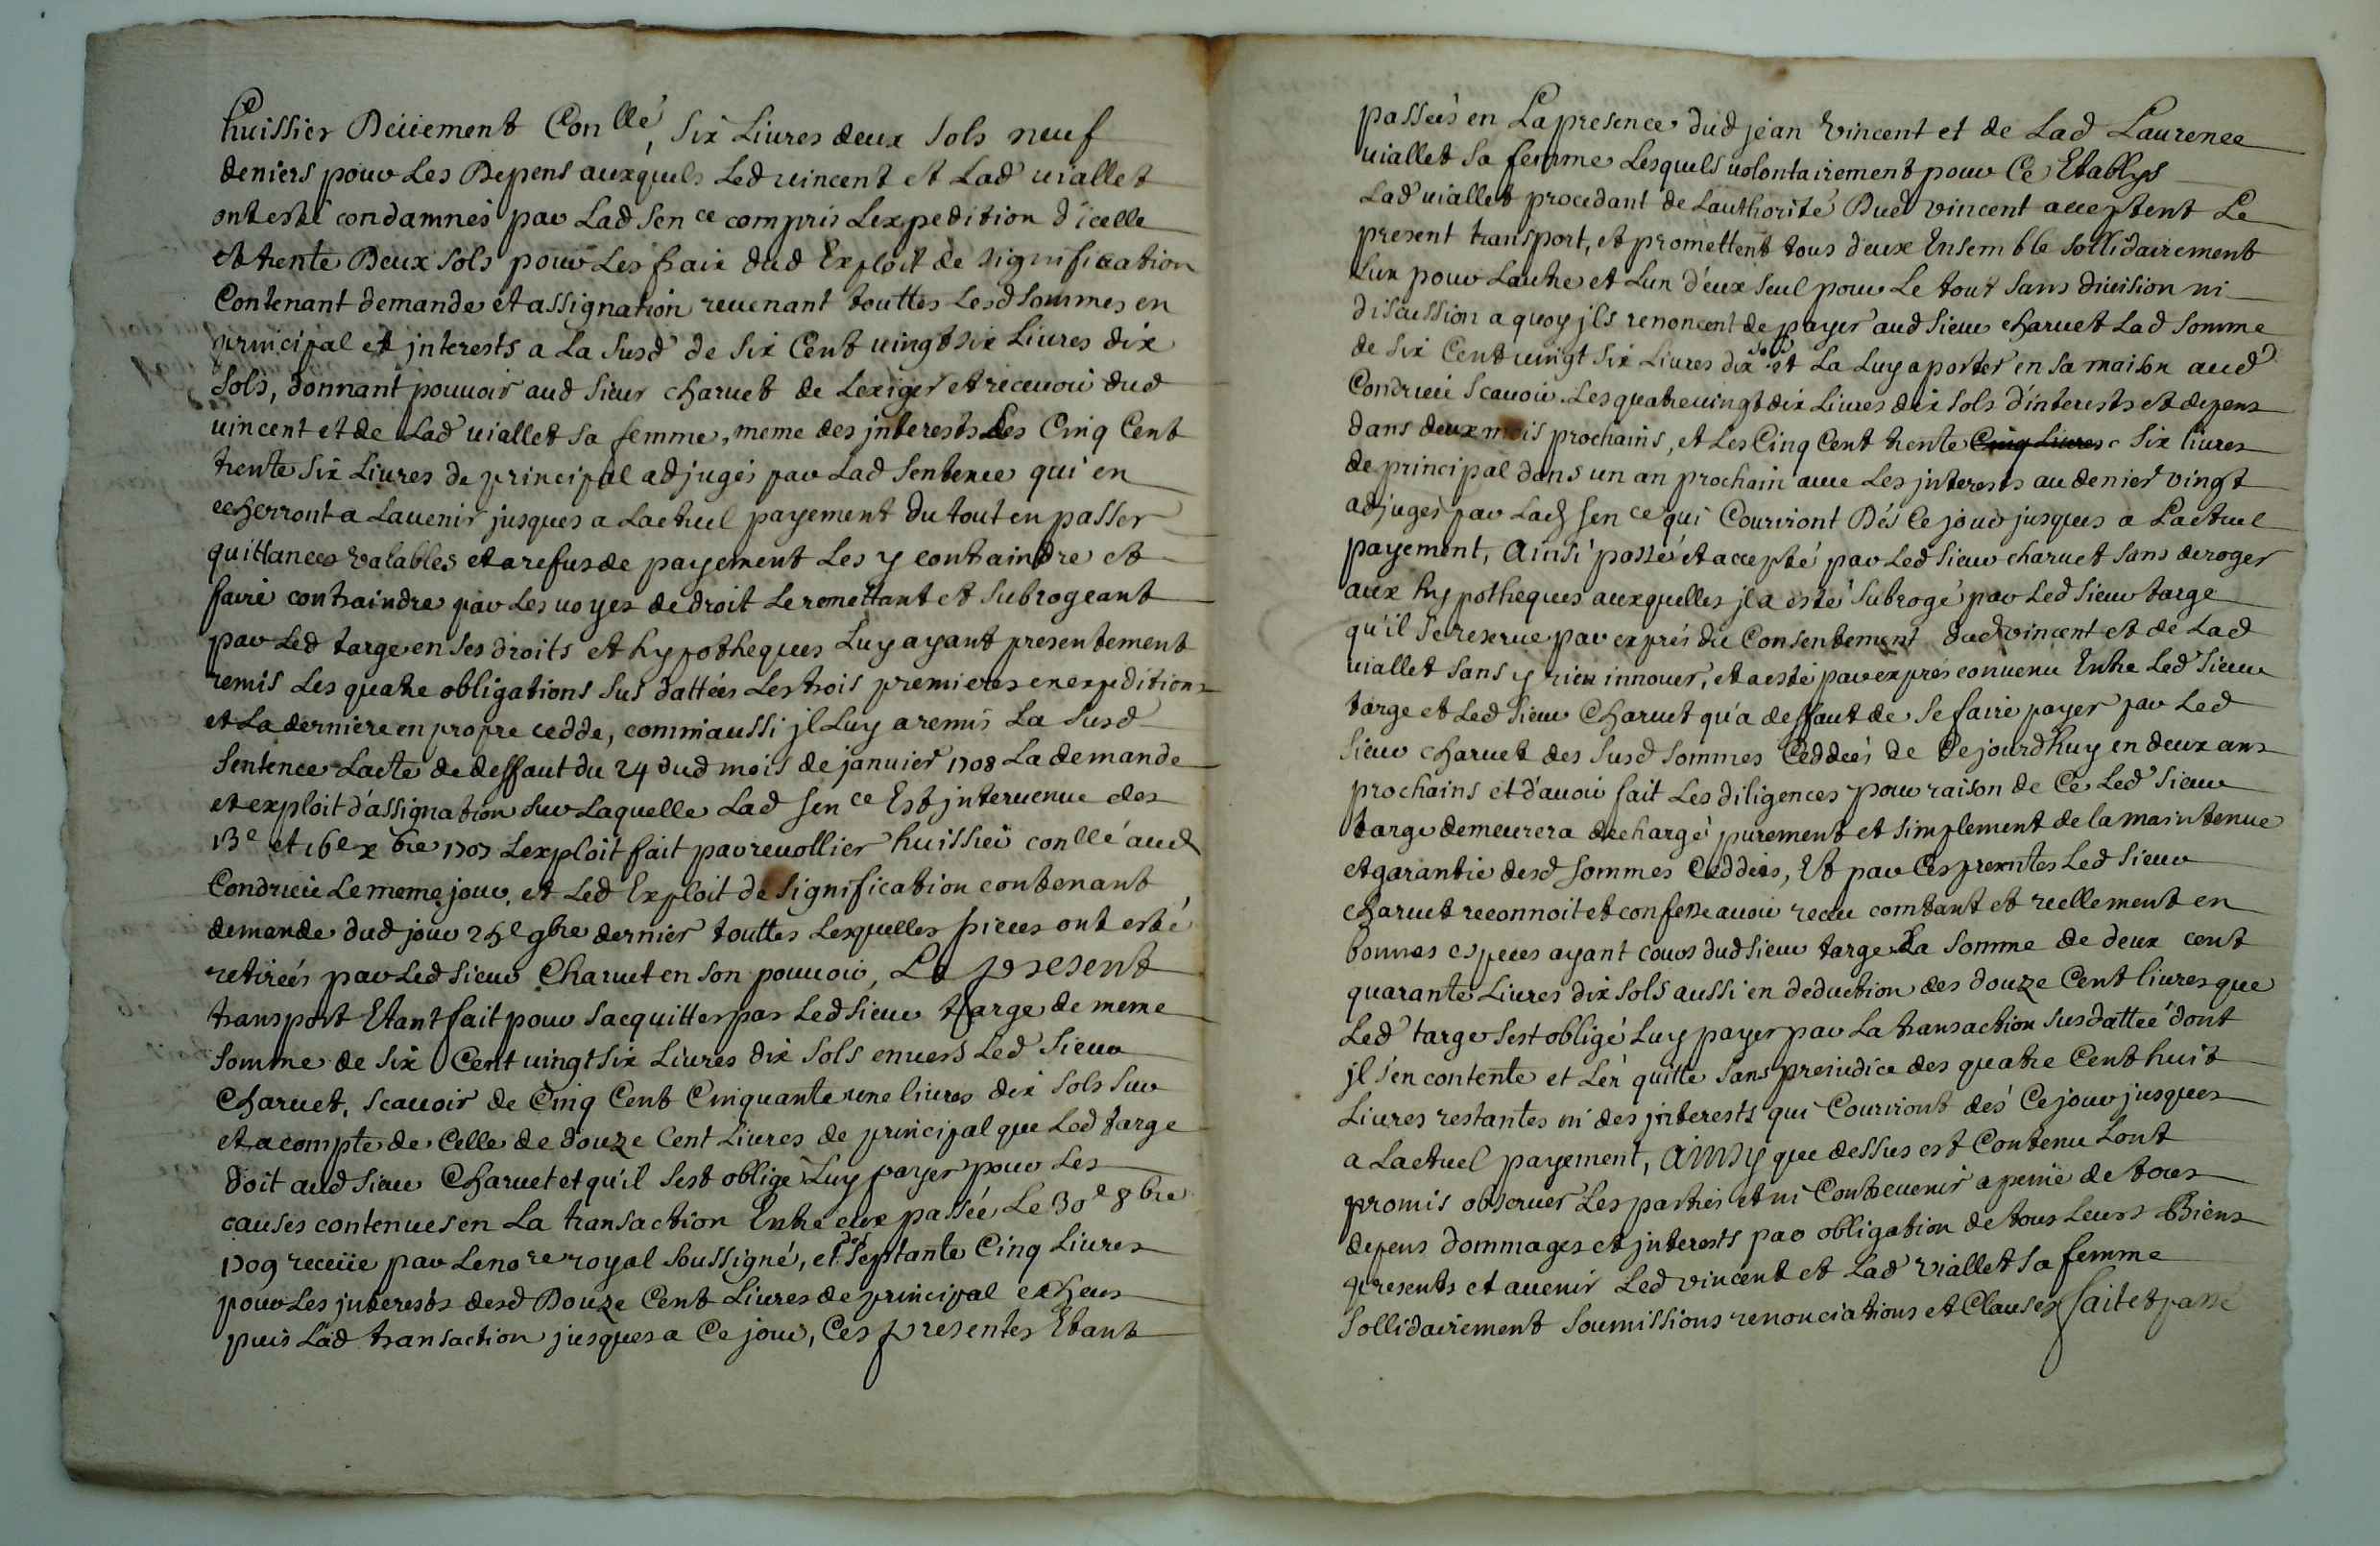 huissier Deüement Conllé, six Liures deux sols neuf
deniers pour Les Depens auxquels Led uincent et Lad uiallet
ont esté condamnés par Lad sen ce compris Lexpedition d'icelle
et trente Deux sols pour Les frais dud Exploit de signification
Contenant demande et assignation reuenant touttes Lesd sommes en
principal et jnterests a La susd de six Cent uingt six Liures dix
sols, donnant pouuoir aud sieur charuet de Lexiger et receuoir dud
uincent et de Lad uiallet sa femme, meme des jnterests des Cinq Cent
trente six Liures de principal adjugés par Lad sentence qui en
echerront a Lauenir jusques a Lactuel payement du tout en passer
quittances valables et a refus de payement Les y contraindre et
faire contraindre par Les uoyes de droit Le remettant et subrogeant
par Led targe en ses droits et hypotheques Luy ayant presentement
remis Les quatre obligations sus dattées Les trois premieres en expeditions
et La derniere en propre cedde, comm'aussi jl Luy a remis La susd
sentence Lacte de deffaut du 24 dud mois de januier 1708 La demande
et exploit d'assignation sur Laquelle Lad sen ce Est jnteruenue des
13e et 16e xbre 1707 Lexploit fait par reuollier huissier conllé aud
Condrieü Le meme jour, et Led Exploit de signification contenant
demande dud jour 25e 9bre dernier touttes Lesquelles pieces ont esté
retireés par Led sieur Charuet en son pouuoir, Le present
transport Etant fait pour sacquitter par Led sieur targe de meme
somme de six Cent uingt six Liures dix sols enuers Led sieur
Charuet, scauoir de Cinq Cent Cinquante une liures dix sols sur
et a compte de Celle de douze Cent Liures de principal que Led targe
doit aud sieur Charuet et qu'il s'est obligé Luy payer pour Les
causes contenues en La transaction Entre eux passée Le 30e 8bre
1709 receüe par Le no re royal soussigné, et septante Cinq Liures
pour Les jnterests desd Douze Cent Liures de principal echeus
puis Lad transaction jusques a Ce jour, Ces presentes Etant
passeés en La presence dud jean Vincent et de Lad Laurence
uiallet sa femme Lesquels uolontairement pour Ce Etablys
Lad uiallet procedant de Lauthorité Dud vincent acceptent Le
present transport, et promettent tous deux Ensemble sollidairement
Lun pour Lautre et Lun d'eux seul pour Le tout sans diuision ni
discussion a quoy jls renoncent de payer aud sieur charuet Lad somme
de six Cent uingt six Liures dix sols et La Luy aporter en sa maison aud
Condrieü scauoir Les quatre uingt dix Liures dix sols d'interests et depens
dans deux mois prochains, et Les Cinq Cent trente Cinq Liures six liures
de principal dans un an prochain auec Les jnterests au denier vingt
adjugés par Lad sen ce qui Courront Dés Ce jour jusques a Lactuel
payement, Ainsi passé et accepté par Led sieur charuet sans deroger
aux hypotheques auxquelles jl a esté subrogé par Led sieur targe
qu'il se reserue par exprés du Consentement dud vincent et de Lad
uiallet sans y rien innouer, et a esté par exprés conuenu Entre Led sieur
targe et Led sieur Charuet qu'a deffaut de se faire payer par Led
sieur charuet des susd sommes Ceddeés de Cejourdhuy en deux ans
prochains et d'auoir fait Les diligences pour raison de Ce Led sieur
targe demeurera dechargé purement et simplement de la maintenue
et garantie desd sommes Ceddeés, Et par Ces presentes Led sieur
charuet reconnoit et confesse auoir receu comtant et reellement en
bonnes especes ayant cours dud sieur targe La somme de deux cent
quarante Liures dix sols aussi en deduction des douze Cent liures que
Led targe s'est obligé Luy payer par La transaction susdatteé dont
jl s'en contente et L'en quitte sans prejudice des quatre Cent huit
Liures restantes ni des jnterests qui Courront dés Ce jour jusques
a Lactuel payement, Ainsy que dessus est Contenu Lont
promis obseruer Les parties et ni Contreuenir a peine de tous
depens dommages et jnterests par obligation de tous Leurs Biens
presents et auenir Led vincent et Lad viallet sa femme
sollidairement soumissions renonciations et Clauses fait et passé